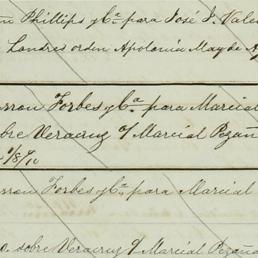 Phillips y Ca. para José J. Vale
Londres orden Apolonia May de A
rron Forbes y Ca. para Marcial
bre Veracruz o/ Marcial Pezaña
rron Forbes y Ca. para Marcial
o. sobre Veracruz o/ Marcial Pezaña